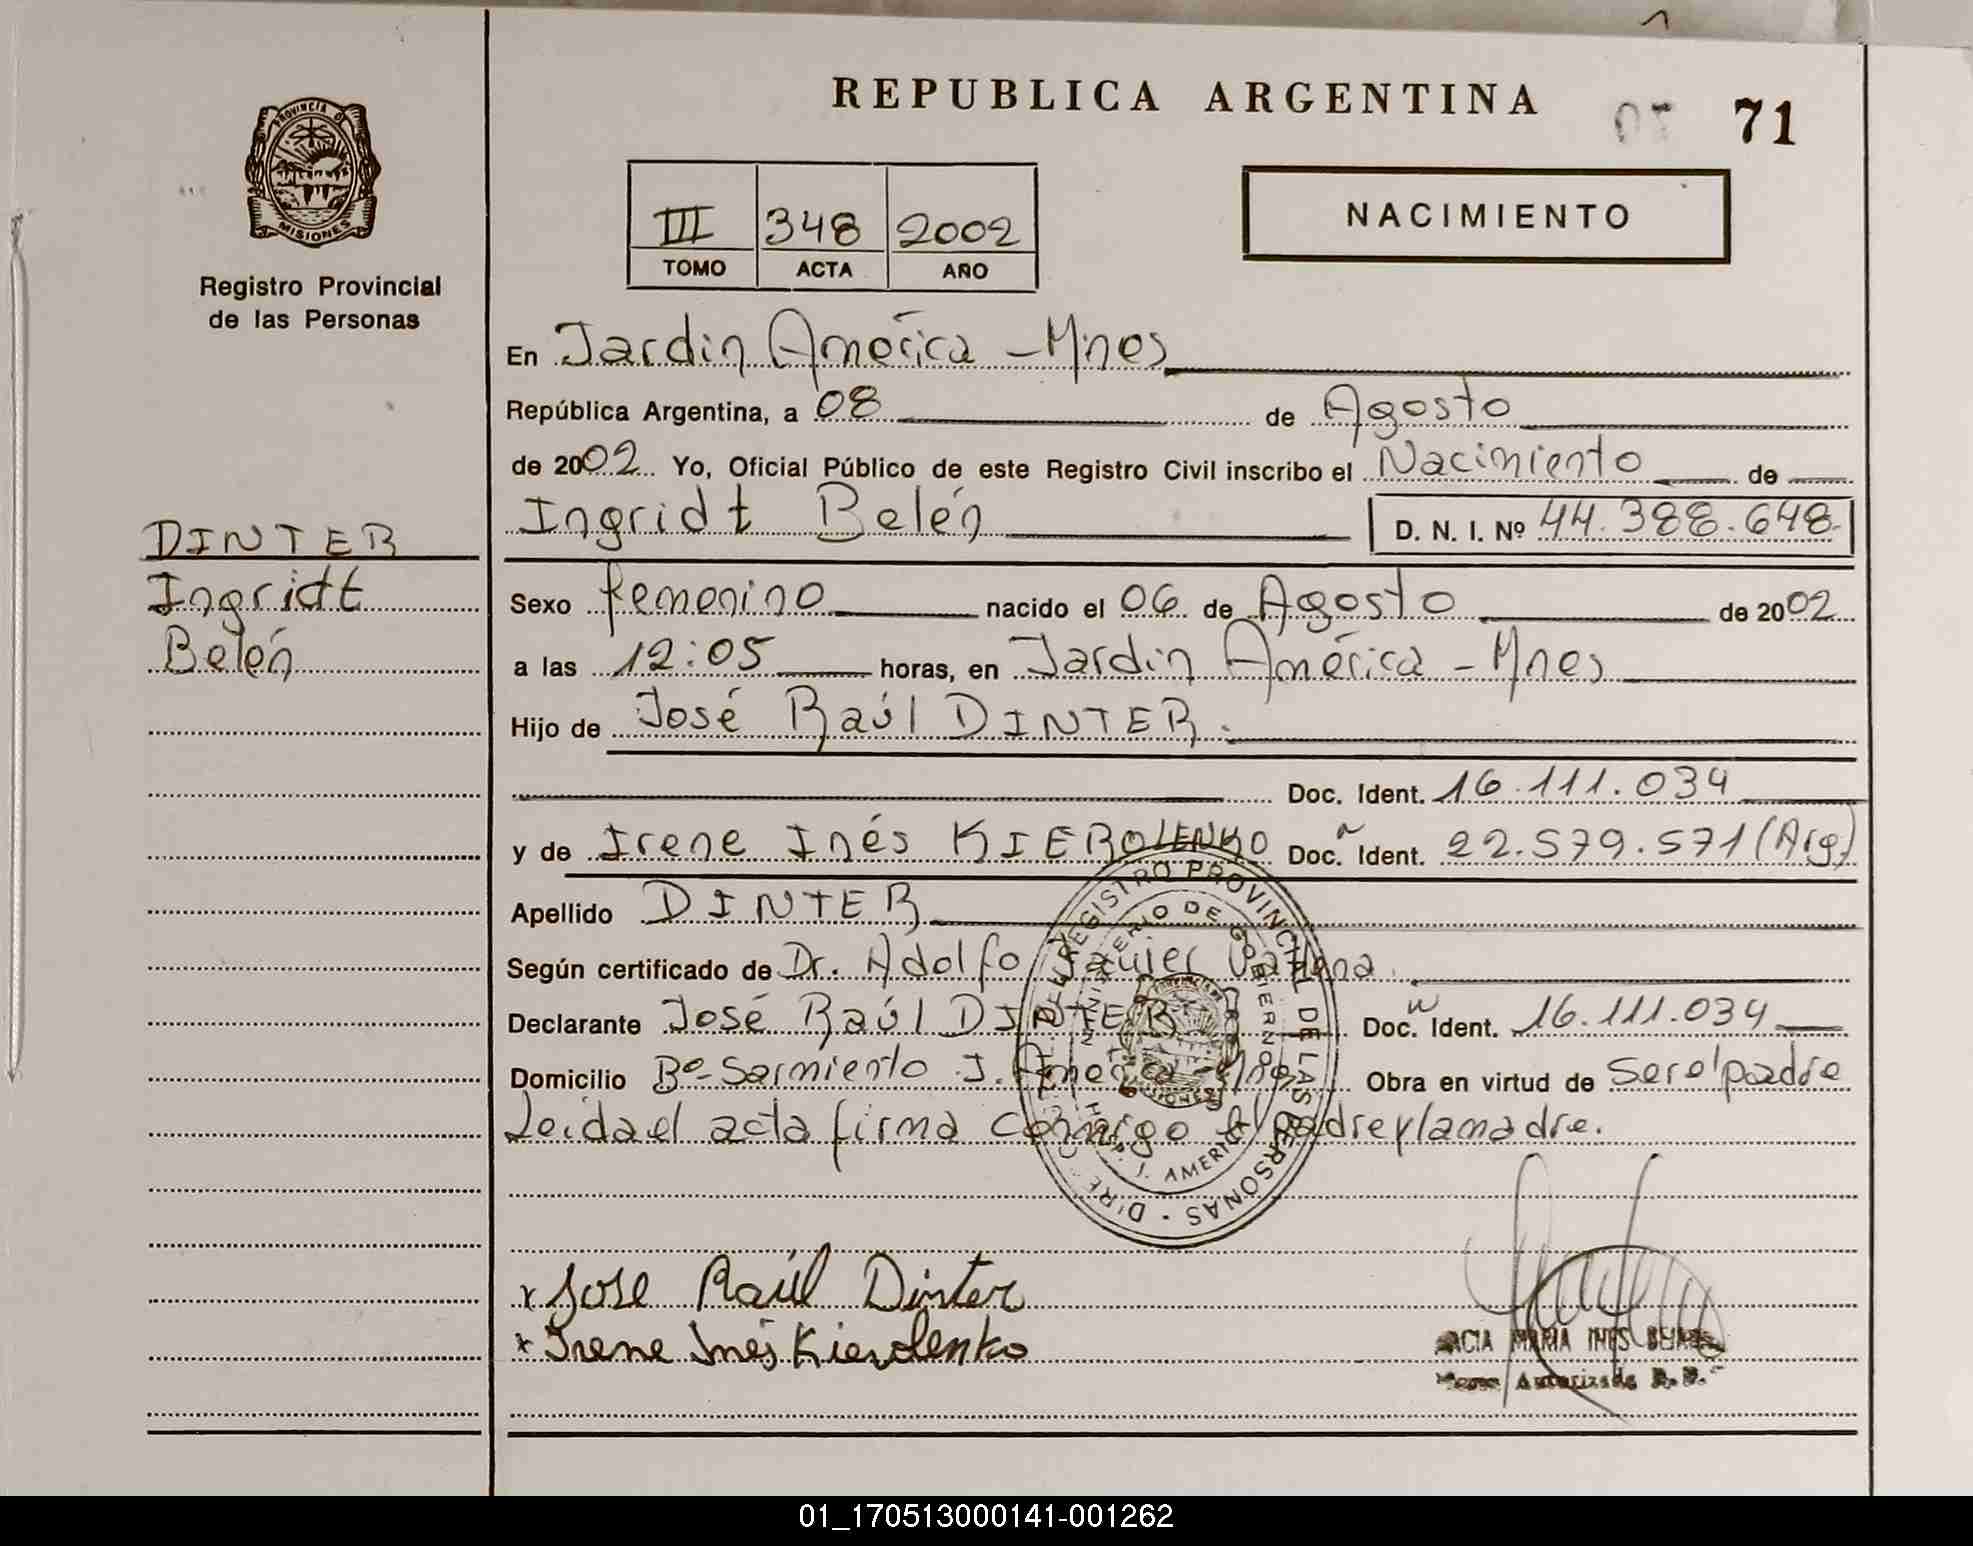 REPUBLICA ARGENTINA
71
PROVINCIA DE
MISIONES
Registro Provincial
de las Personas
III 348 2002
TOMO ACTA AÑO
NACIMIENTO
En Jardin América - Mnes
República Argentina, a 08 de Agosto
de 2002 Yo, Oficial Público de este Registro Civil inscribo el Nacimiento de
Ingridt Belén D. N. I. Nº 44.388.648
DINTER
Ingridt
Belén
Sexo femenino nacido el 06 de Agosto de 2002
a las 12:05 horas, en Jardin América - Mnes
Hijo de José Raúl DINTER.
Doc. Ident. 16.111.034
y de Irene Inés KIEROLENKO Doc. Ident. 22.579.571 (Arg)
Apellido DINTER
Según certificado de Dr. Adolfo Javier
Declarante José Raúl DINTER Doc. Ident. 16.111.034
Domicilio Bº Sarmiento J. América - Mnes Obra en virtud de ser el padre
Leida el acta firma conmigo el padre y la madre.
REGISTRO PROVINCIAL DE LAS PERSONAS
MINISTERIO DE GOBIERNO
J. AMERICA
x Jose Raúl Dinter
x Irene Inés Kierolenko
MARIA INES
01_170513000141-001262